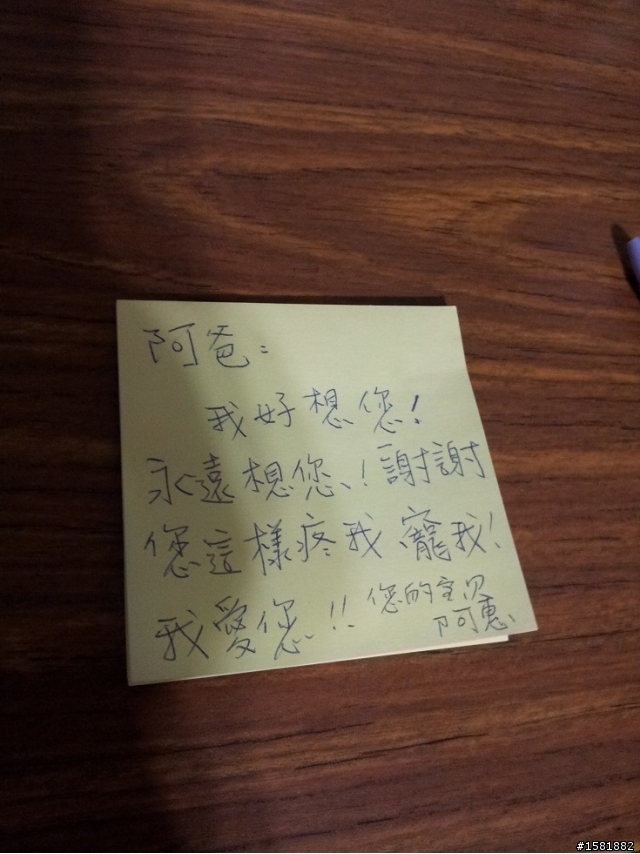 阿爸：
我好想您！
永遠想您！謝謝
您這樣疼我、寵我！
我愛您！！您的寶貝
阿惠
#1581882